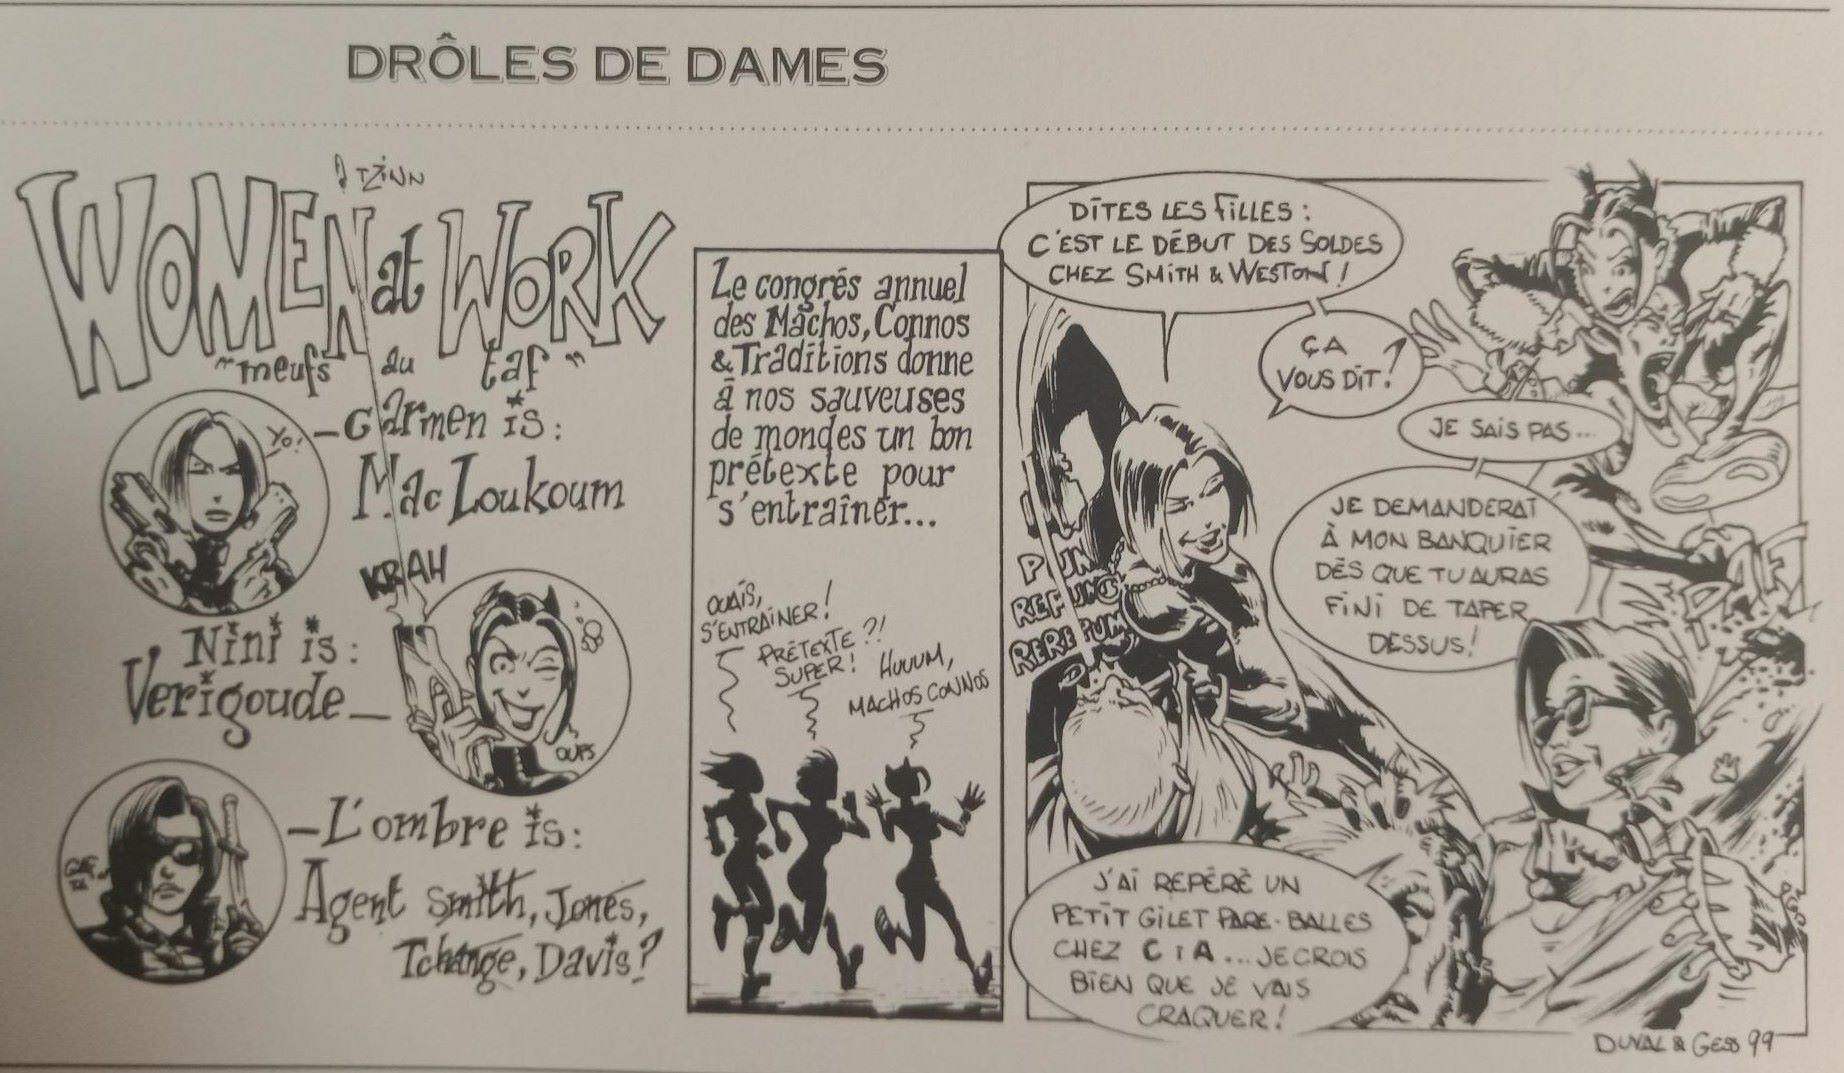 DRÔLES DE DAMES
TZINN
WOMEN at WORK
"meufs au taf"
YO!
- Carmen is:
Mac Loukoum
KRAH
Nini is:
Verigoude -
OUPS
- L'ombre is:
Agent Smith, Jones,
Tchange, Davis?
Le congrés annuel
des Machos, Connos
& Traditions donne
à nos sauveuses
de mondes un bon
prétexte pour
s'entraîner...
OUAIS,
S'ENTRAINER!
PRÉTEXTE ?!
SUPER!
HUUUM,
MACHOS CONNOS
DITES LES FILLES :
C'EST LE DÉBUT DES SOLDES
CHEZ SMITH & WESTON !
ÇA
VOUS DIT!
JE SAIS PAS...
JE DEMANDERAI
À MON BANQUIER
DÈS QUE TU AURAS
FINI DE TAPER
DESSUS!
PUM
REPUM
REREPUM
J'AI REPÉRÉ UN
PETIT GILET PARE-BALLES
CHEZ CIA... JE CROIS
BIEN QUE JE VAIS
CRAQUER!
DUVAL & GESS 99